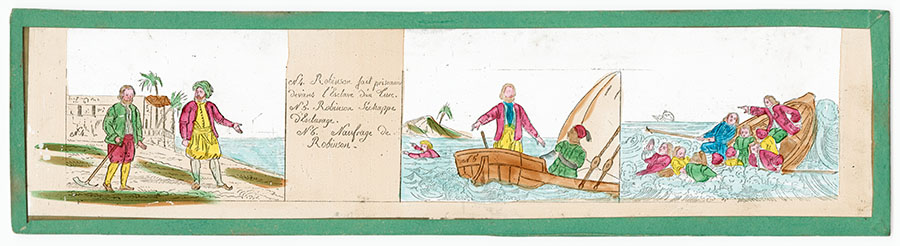 N4. Robinson fait prisonnier
devient l'Esclave d'un Turc.
N5. Robinson s'échappe
d'Esclavage.
N6. Naufrage de
Robinson.